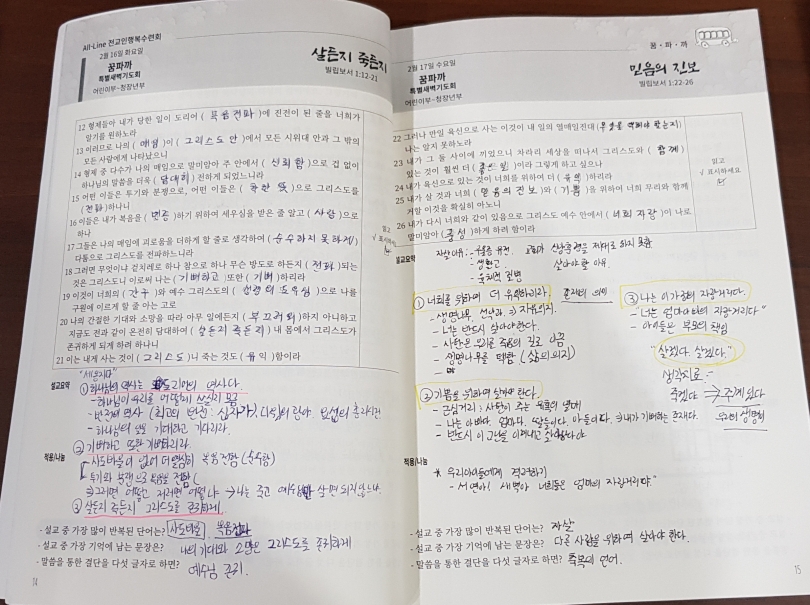 All-Line 전교인행복수련회
2월 16일 화요일
꿈파까
특별새벽기도회
어린이부~청장년부
살든지 죽든지
빌립보서 1:12-21
12 형제들아 내가 당한 일이 도리어 ( 복음전파 )에 진전이 된 줄을 너희가
알기를 원하노라
13 이러므로 나의 ( 매임 )이 ( 그리스도 안 )에서 모든 시위대 안과 그 밖의
모든 사람에게 나타났으니
14 형제 중 다수가 나의 매임으로 말미암아 주 안에서 ( 신뢰함 )으로 겁 없이
하나님의 말씀을 더욱 ( 담대히 ) 전하게 되었느니라
15 어떤 이들은 투기와 분쟁으로, 어떤 이들은 ( 착한 뜻 )으로 그리스도를
( 전파 )하나니
16 이들은 내가 복음을 ( 변증 )하기 위하여 세우심을 받은 줄 알고 ( 사랑 )으로
하나
17 그들은 나의 매임에 괴로움을 더하게 할 줄로 생각하여 ( 순수하지 못하게 )
다툼으로 그리스도를 전파하느니라
18 그러면 무엇이냐 겉치레로 하나 참으로 하나 무슨 방도로 하든지 ( 전파 )되는
것은 그리스도니 이로써 나는 ( 기뻐하고 ) 또한 ( 기뻐 )하리라
19 이것이 너희의 ( 간구 )와 예수 그리스도의 ( 성령의 도우심 )으로 나를
구원에 이르게 할 줄 아는 고로
20 나의 간절한 기대와 소망을 따라 아무 일에든지 ( 부끄러워 )하지 아니하고
지금도 전과 같이 온전히 담대하여 ( 살든지 죽든지 ) 내 몸에서 그리스도가
존귀하게 되게 하려 하나니
21 이는 내게 사는 것이 ( 그리스도 )니 죽는 것도 ( 유익 )함이라
읽고
√ 표시하세요
설교요약
① 하나님의 역사는 의 역사다.
- 하나님이 우리를 어떻게 쓰실지 모름
- 반전의 역사 (최고의 반전: 십자가)
- 하나님의 기대하고 기다리라.
② 기뻐하고 또한 기뻐하리라.
- 사도바울이 없어 더 열심히 복음 전함 (순수함)
적용/나눔
- 투기와 분쟁으로 전함
⇒ 그러면 어떻고 저러면 어떻냐 → 나는 죽고 예수만 살면 되지 않느냐.
③ 살든지 죽든지 그리스도를 존귀하게
- 설교 중 가장 많이 반복된 단어는? 사도바울, 복음전파
- 설교 중 가장 기억에 남는 문장은? 나의 기대와 소망은 그리스도를 존귀하게
- 말씀을 통한 결단을 다섯 글자로 하면? 예수님 존귀.
14
2월 17일 수요일
꿈파까
특별새벽기도회
어린이부~청장년부
꿈·파·까
믿음의 진보
빌립보서 1:22-26
22 그러나 만일 육신으로 사는 이것이 내 일의 열매일진대 ( 무엇을 택해야 할는지 )
나는 알지 못하노라
23 내가 그 둘 사이에 끼었으니 차라리 세상을 떠나서 그리스도와 ( 함께 )
있는 것이 훨씬 더 ( 좋은 일 )이라 그렇게 하고 싶으나
24 내가 육신으로 있는 것이 너희를 위하여 더 ( 유익 )하리라
25 내가 살 것과 너희 ( 믿음의 진보 )와 ( 기쁨 )을 위하여 너희 무리와 함께
거할 이것을 확실히 아노니
26 내가 다시 너희와 같이 있음으로 그리스도 예수 안에서 ( 너희 자랑 )이 나로
말미암아 ( 풍성 )하게 하려 함이라
읽고
√ 표시하세요
설교요약
자살이유: - 우울증 유전.
- 생활고
- 육체적 질병
살아야 할 이유.
① 너희를 위하여 더 유익하리라. 존재의 의미
- 생명나무, 선악과 ⇒ 자유의지.
- 너는 반드시 살아야 한다.
- 사탄은 우리를 죽음의 길로 이끔
- 생명나무를 택함 (삶의 의지)
② 기쁨을 위하여 살아야 한다.
- 근심거리: 사탄이 주는 열매
- 나는 아빠다. 엄마다. 딸이다. 아들이다 ⇒ 내가 기뻐하는 존재다.
- 반드시 이 고난을 이겨내고 살아야
③ 나는 이 가정의 자랑거리다.
- "너는 엄마 아빠의 자랑거리다."
- 아이들은 부모의 책임
"살겠다. 살겠다."
생각치료:
죽겠다 ⇒ 주께 있다
우리의 생명이
적용/나눔
* 우리 아이들에게 격려하기
- 서연아! 새벽아 너희들은 엄마의 자랑거리야."
- 설교 중 가장 많이 반복된 단어는? 자살
- 설교 중 가장 기억에 남는 문장은? 다른 사람을 위하여 살아야 한다.
- 말씀을 통한 결단을 다섯 글자로 하면? 축복의 언어.
15